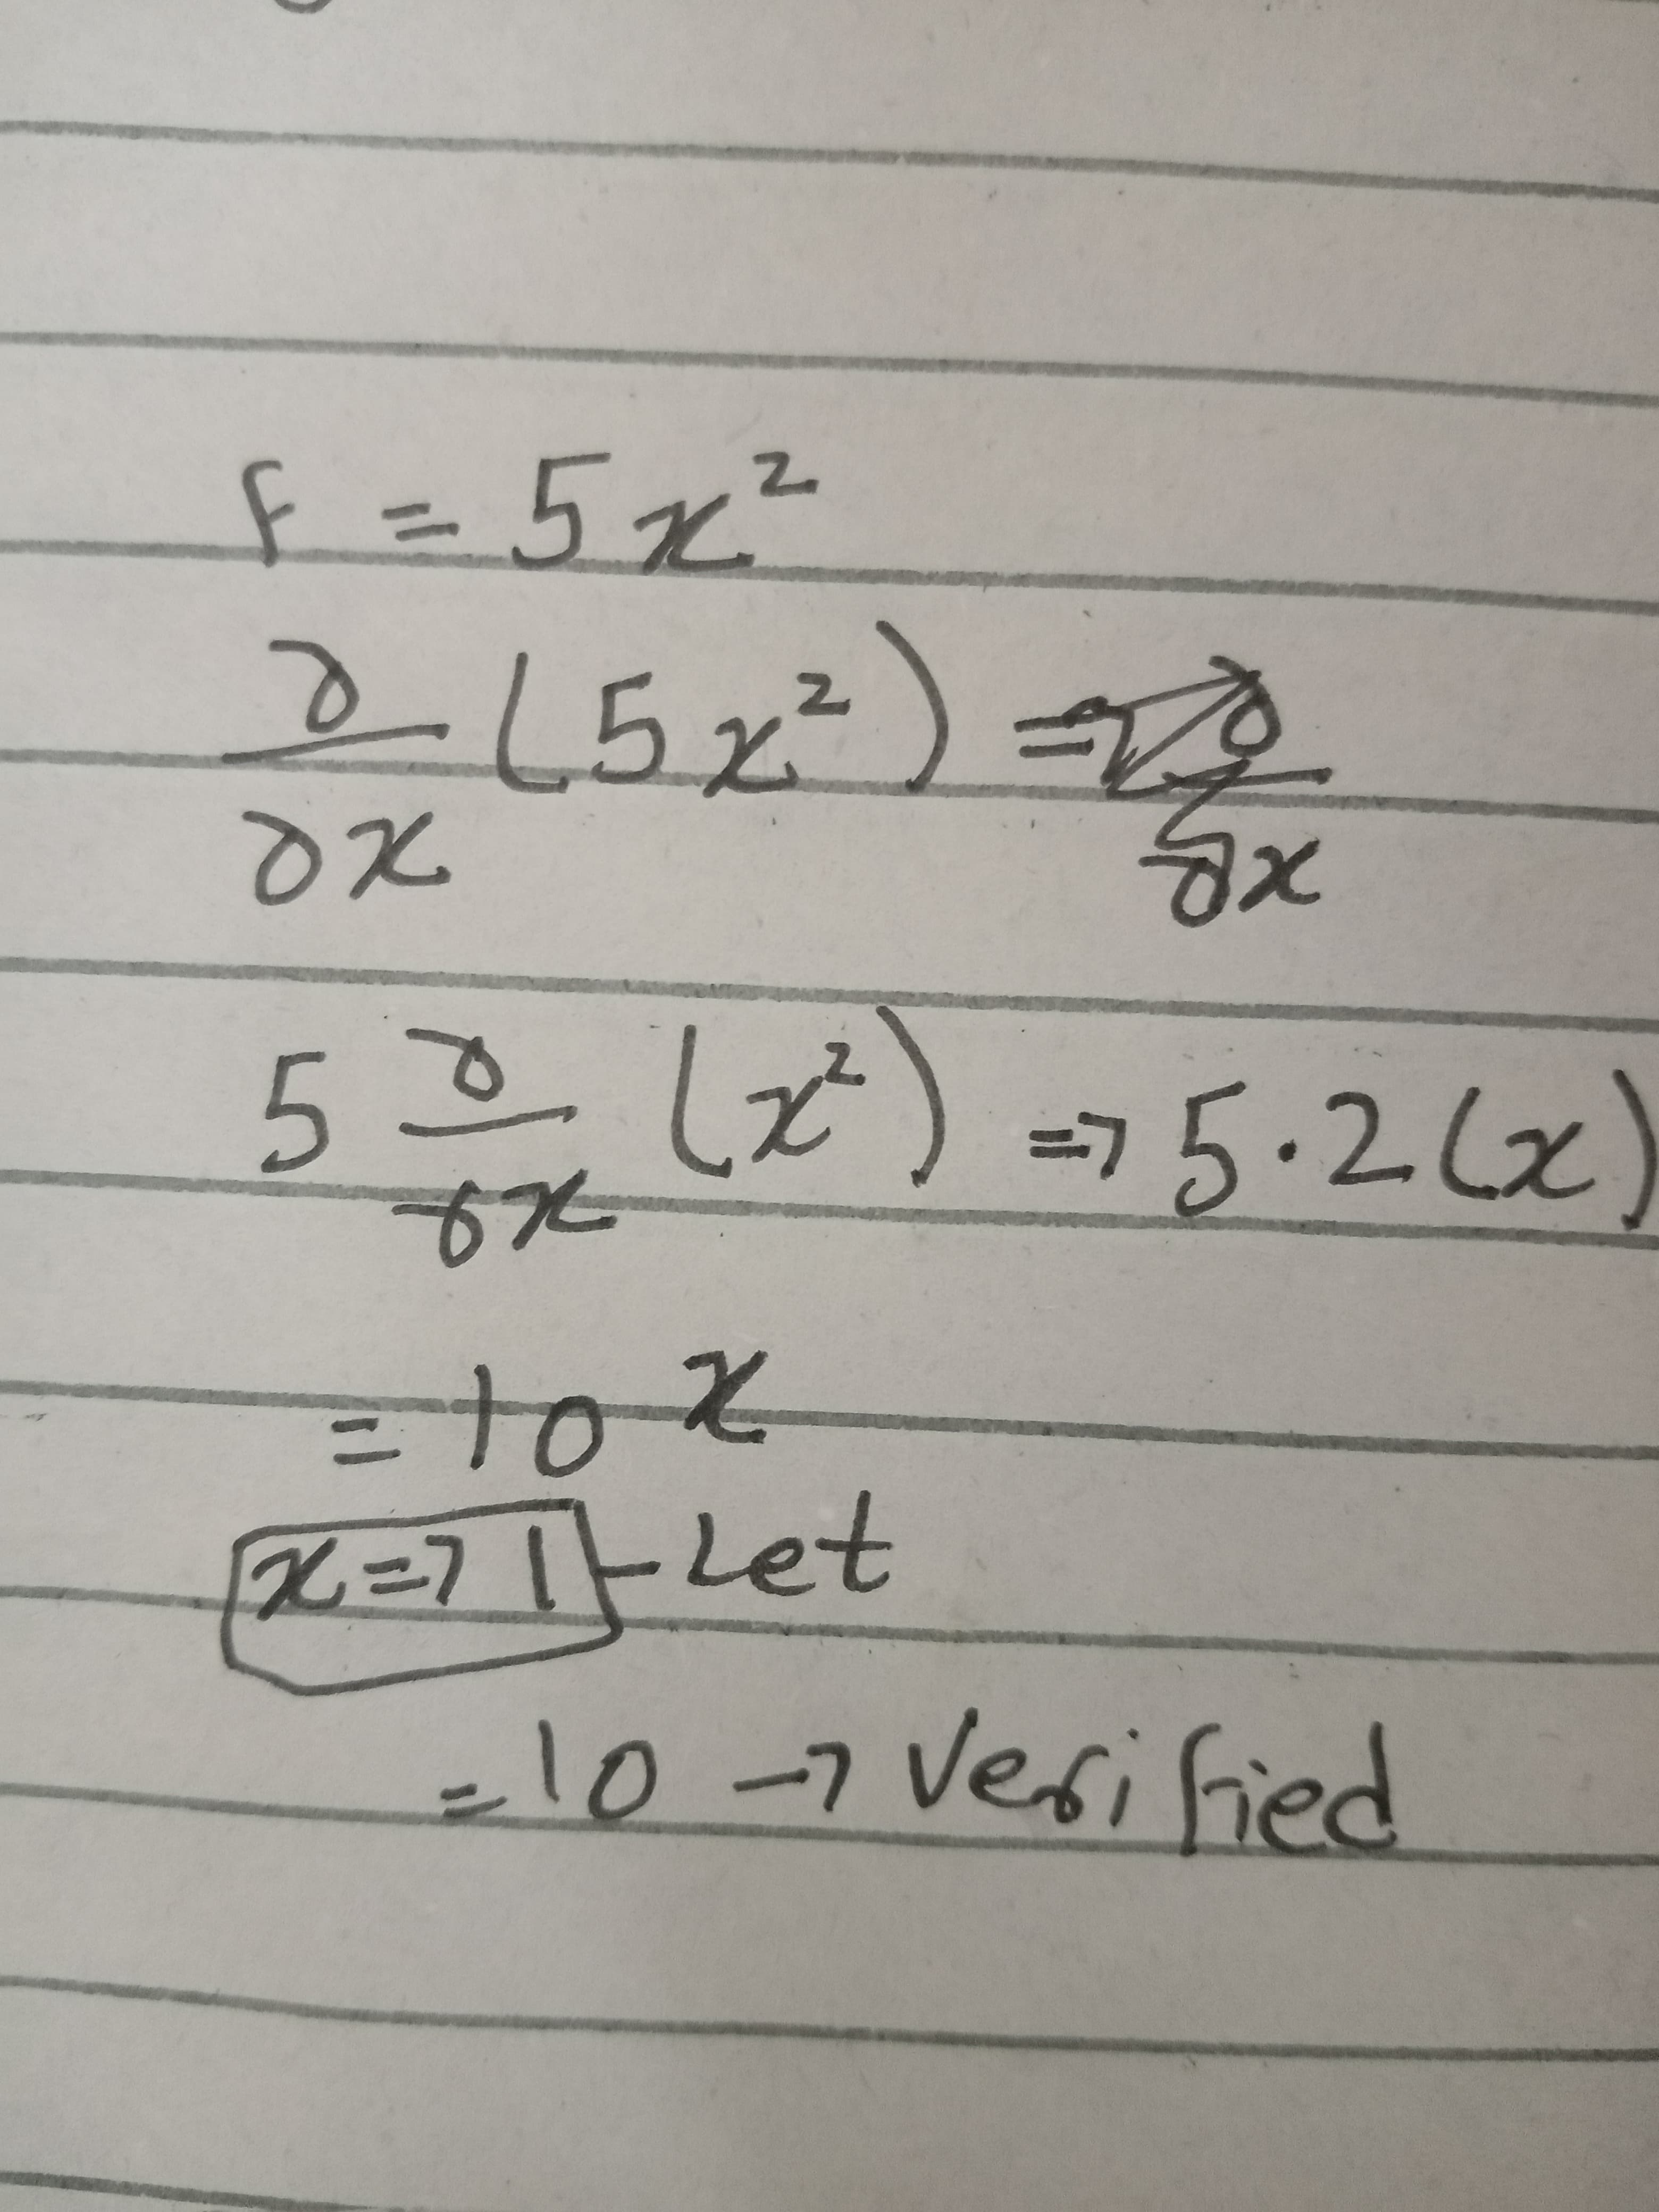 F = 5x²
∂/∂x (5x²) =
5 ∂/∂x (x²) => 5·2(x)
= 10^x
x => 1 - Let
= 10 → Verified